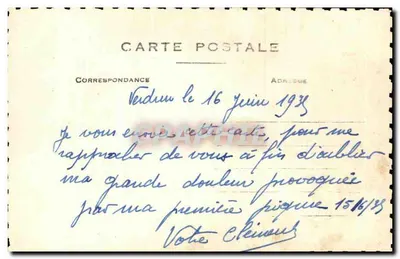 CARTE POSTALE
CORRESPONDANCE ADRESSE
Verdun le 16 Juin 1939
Je vous envoie cette carte, pour me
rapprocher de vous à fin d'oublier
ma grande douleur provoquée
par ma première piqûre 15/6/39
Votre Clément